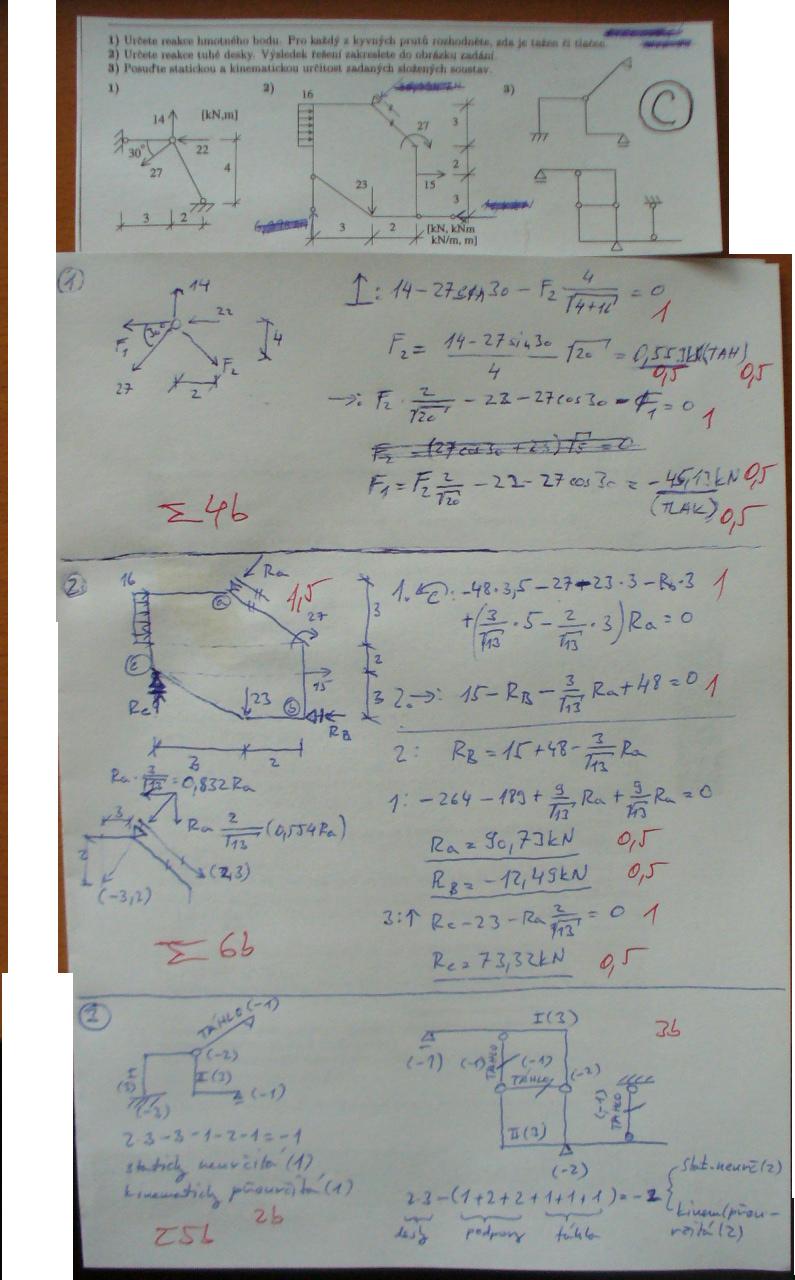 1) Určete reakce hmotného bodu. Pro každý z kyvných prutů rozhodněte, zda je tažen či tlačen.
2) Určete reakce tuhé desky. Výsledek řešení zakreslete do obrázku zadání.
3) Posuďte statickou a kinematickou určitost zadaných složených soustav.
1) 2) 3)
14 [kN,m] 30° 22 27 4 3 2
16 27 15 23 3 2 3 3 2 [kN, kNm
kN/m, m]
C
1
14 22 F1 30° 27 F2 2 4
↑: 14 - 27 sin 30 - F2 4/√4+16 = 0 1
F2 = 14 - 27 sin 30 / 4 √20 = 0,559 kN (TAH) 0,5 0,5
→: F2 · 2/√20 - 22 - 27 cos 30 - F1 = 0 1
F1 = F2 2/√20 - 22 - 27 cos 30 = -45,13 kN 0,5
(TLAK) 0,5
Σ 4b
2.
16 Ra a 1,5 27 c Rc 15 23 b RB 3 2 3 3 2
1. c: -48·3,5 - 27 - 23·3 - RB·3 1
+(3/√13 · 5 - 2/√13 · 3) Ra = 0
2. →: 15 - RB - 3/√13 Ra + 48 = 0 1
2: RB = 15 + 48 - 3/√13 Ra
1: -264 - 189 + 9/√13 Ra + 9/√13 Ra = 0
Ra = 90,73 kN 0,5
RB = -12,49 kN 0,5
3: ↑ Rc - 23 - Ra 2/√13 = 0 1
Rc = 73,32 kN 0,5
Ra · 3/√13 = 0,832 Ra
Ra 2/√13 (0,554 Ra)
3 2 (-3,2) (2,3)
Σ 6b
TÁHLO (-1)
(-2)
II (3)
(-1)
(-3)
2·3 - 3 - 1 - 2 - 1 = -1
staticky neurčitá (1)
kinematicky přeurčitá (1)
2b
Σ5b
I (3) 3b
(-1) (-1) TÁHLO (-1) TÁHLO (-2)
II (3) (-1) TÁHLO
(-2)
2·3 - (1+2+2+1+1+1) = -2
stat. neurč (2)
kinem přeu-
rčitá (2)
desky podpory táhla